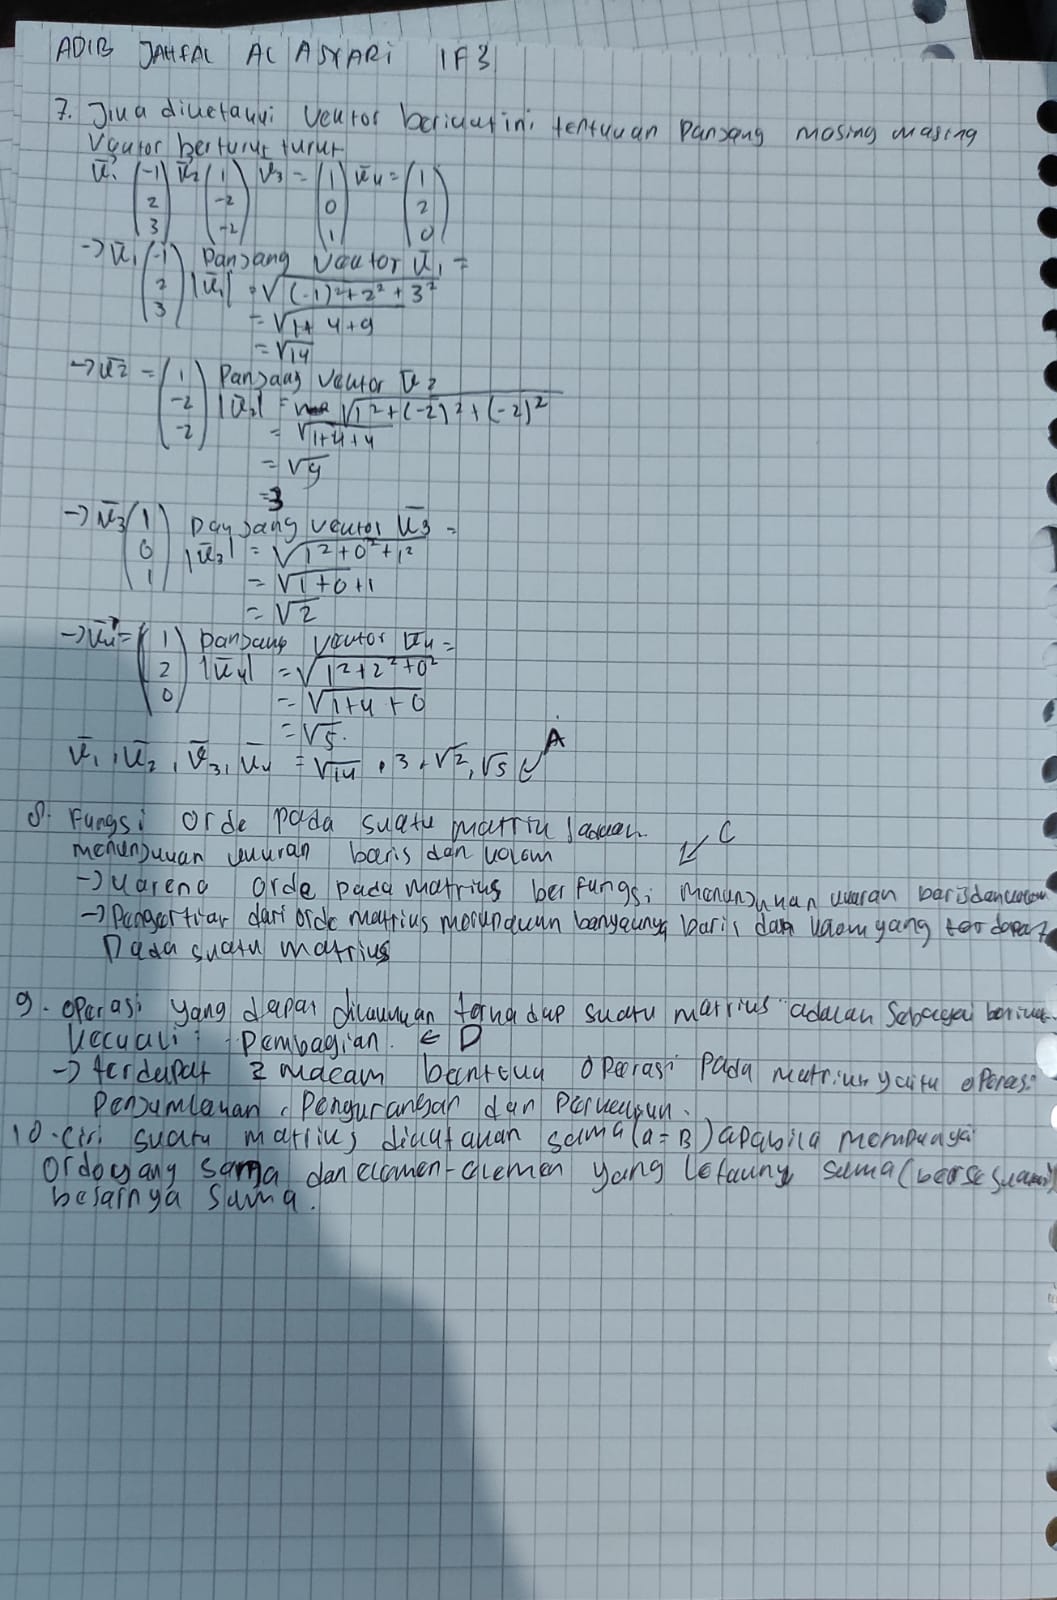 ADIB JAHFAL AL ASYARI IF3
7. Jika diketahui vektor berikut ini tentukan panjang masing masing
vektor berturut turut
ū₁ (-1 2 3) ū₂ (1 -2 -2) ū₃ = (1 0 1) ū₄ = (1 2 0)
-> ū₁ (-1 2 3) Panjang vektor ū₁ =
|ū₁| = √(-1)²+2²+3²
= √1+4+9
= √14
-> ū₂ = (1 -2 -2) Panjang vektor ū₂
|ū₂| = √1²+(-2)²+(-2)²
= √1+4+4
= √9
= 3
-> ū₃ (1 0 1) Panjang vektor ū₃ =
|ū₃| = √1²+0²+1²
= √1+0+1
= √2
-> ū₄ = (1 2 0) Panjang vektor ū₄ =
|ū₄| = √1²+2²+0²
= √1+4+0
= √5.
ū₁, ū₂, ū₃, ū₄ = √14, 3, √2, √5 ↙ A
8. Fungsi orde pada suatu matrik adalah
menunjukan ukuran baris dan kolom ↙ C
-> karena orde pada matriks berfungsi menunjukan ukuran baris dan kolom
-> Pengertian dari orde matriks menunjukan banyaknya baris dan kolom yang terdapat
pada suatu matriks
9. operasi yang dapat dilakukan terhadap suatu matriks adalah sebagai berikut
kecuali : pembagian. ← D
-> terdapat 3 macam bentuk operasi pada matriks yaitu operasi
penjumlahan, pengurangan dan perkalian.
10. Ciri suatu matriks dikatakan sama (a = B) apabila mempunyai
ordo yang sama dan elemen-elemen yang letaknya sama (bersesuaian)
besarnya sama.